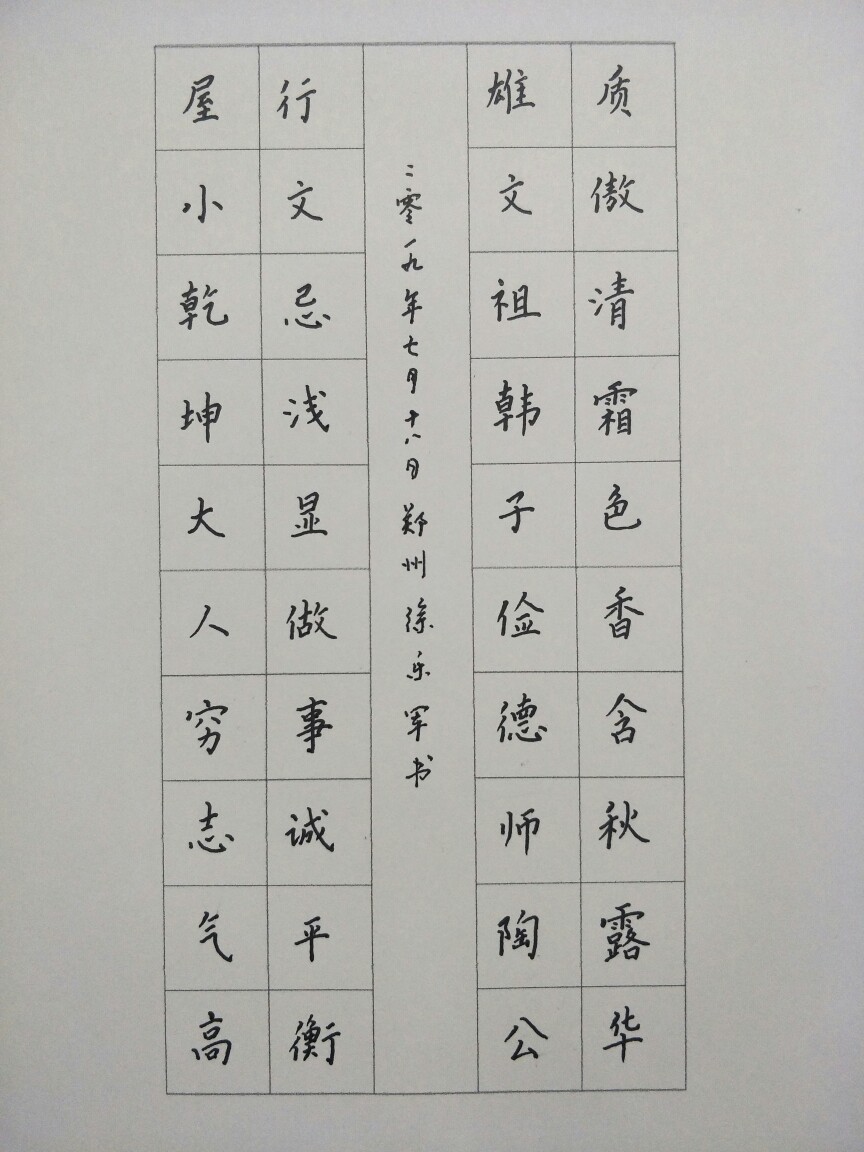 质傲清霜色香含秋露华
雄文祖韩子俭德师陶公
二零一九年七月十八日郑州徐乐军书
行文忌浅显做事诚平衡
屋小乾坤大人穷志气高